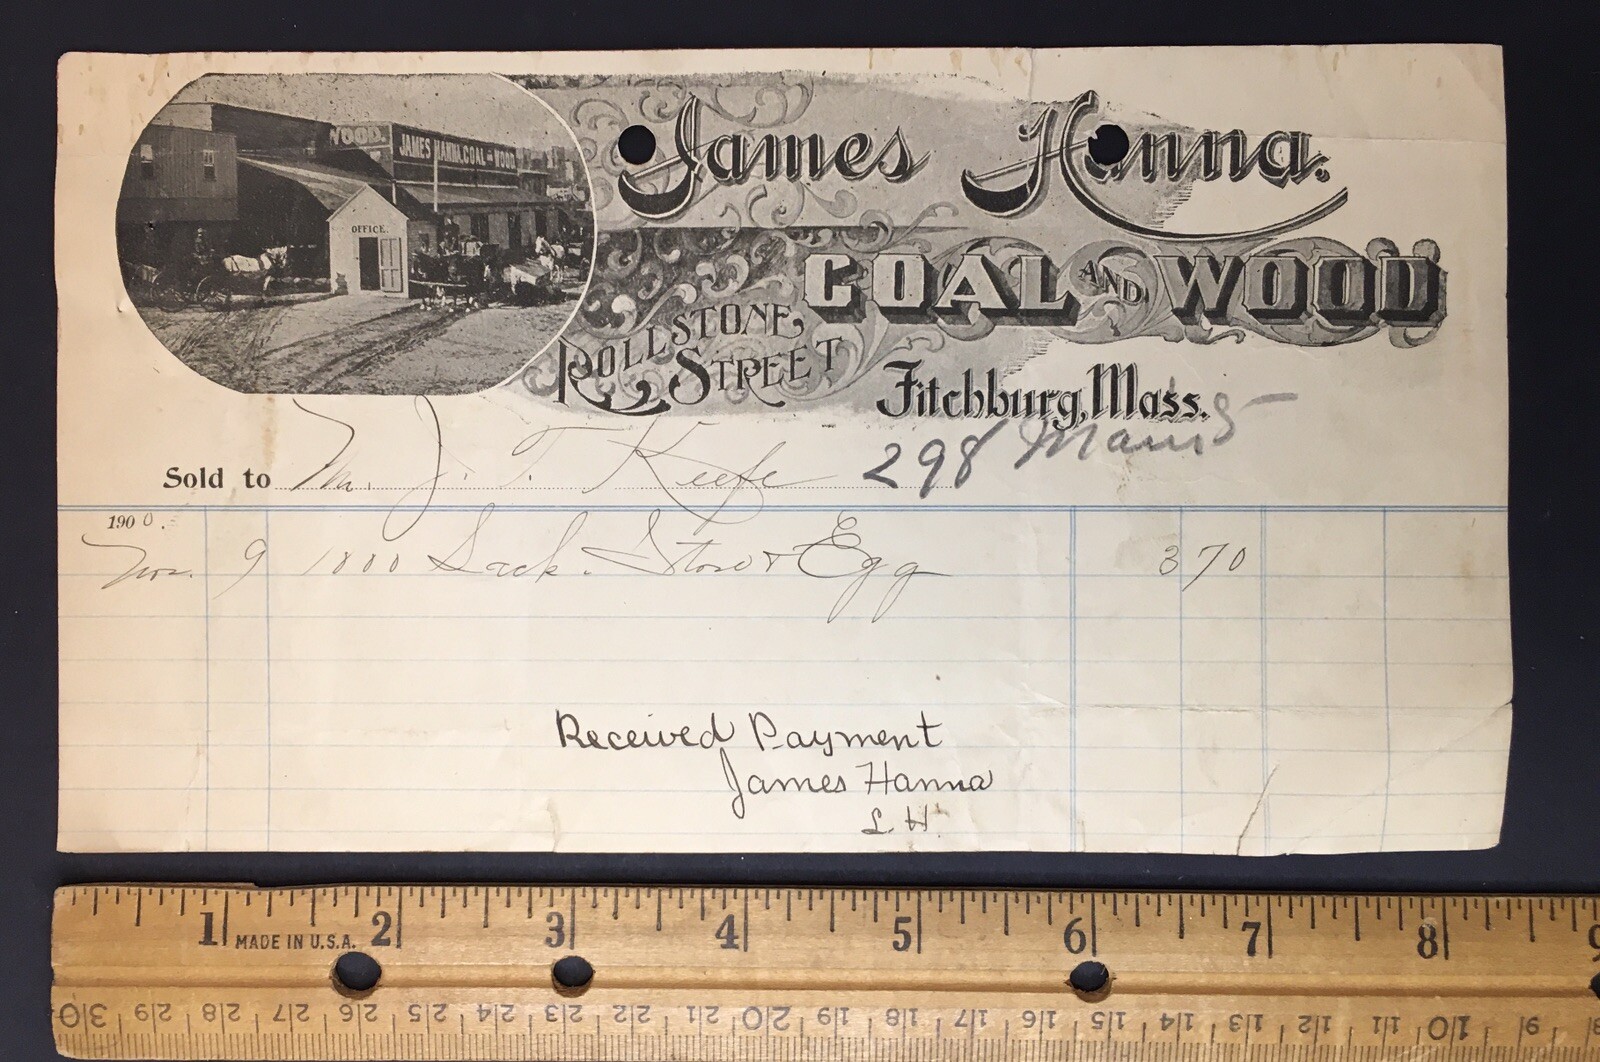 WOOD.
JAMES HANNA, COAL AND WOOD
OFFICE
James Hanna.
COAL AND WOOD
ROLLSTONE STREET
Fitchburg, Mass.
Sold to Mr. J. T. Keefe 298 Main St
1900.
Nov. 9 1000 Lack. Stove & Egg 3 70
Received Payment
James Hanna
L. H.
1 2 3 4 5 6 7 8 9
MADE IN U.S.A.
30 29 28 27 26 25 24 23 22 21 20 19 18 17 16 15 14 13 12 11 10 9 8